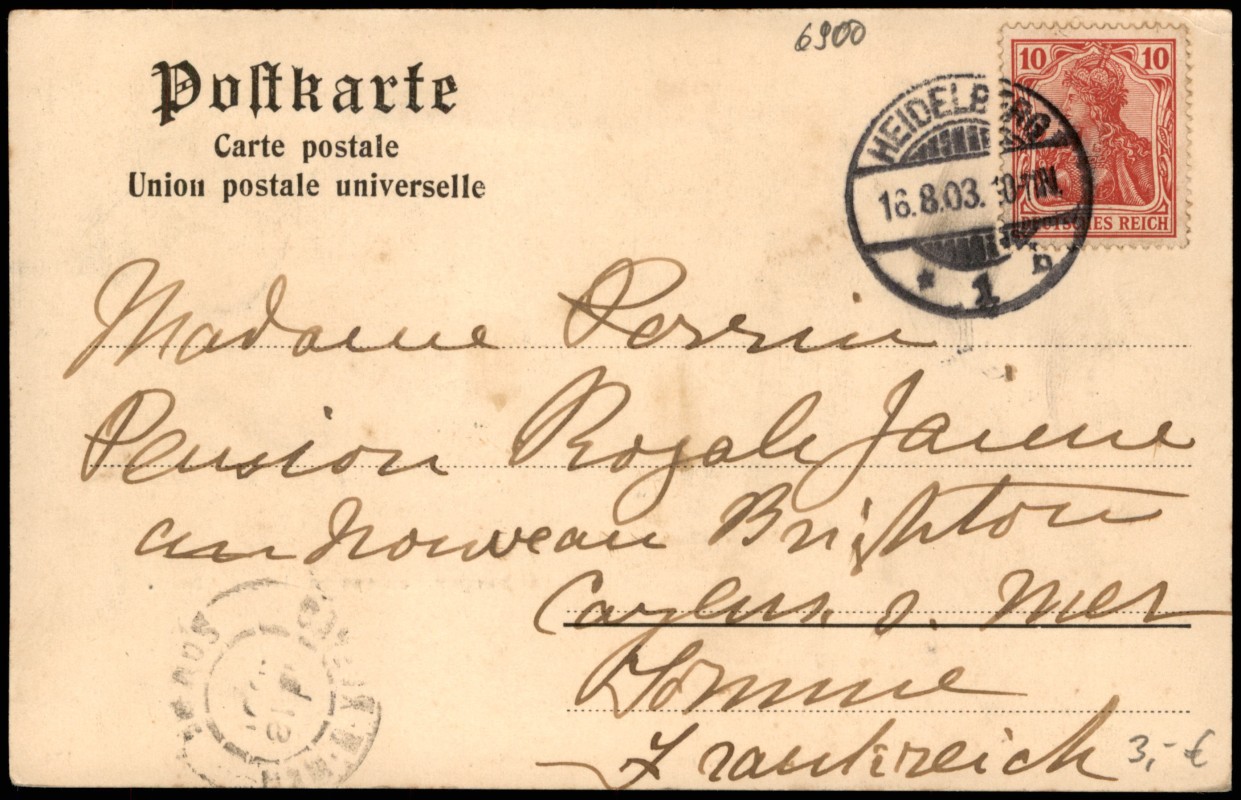 6900
Postkarte
Carte postale
Union postale universelle
10 10
DEUTSCHES REICH
HEIDELBERG
16.8.03. 10-11N.
* 1 b
Madame Perrin
Pension Royale Jeanne
au Nouveau Brighton
Cayeux s. Mer
Somme
Frankreich
3,- €